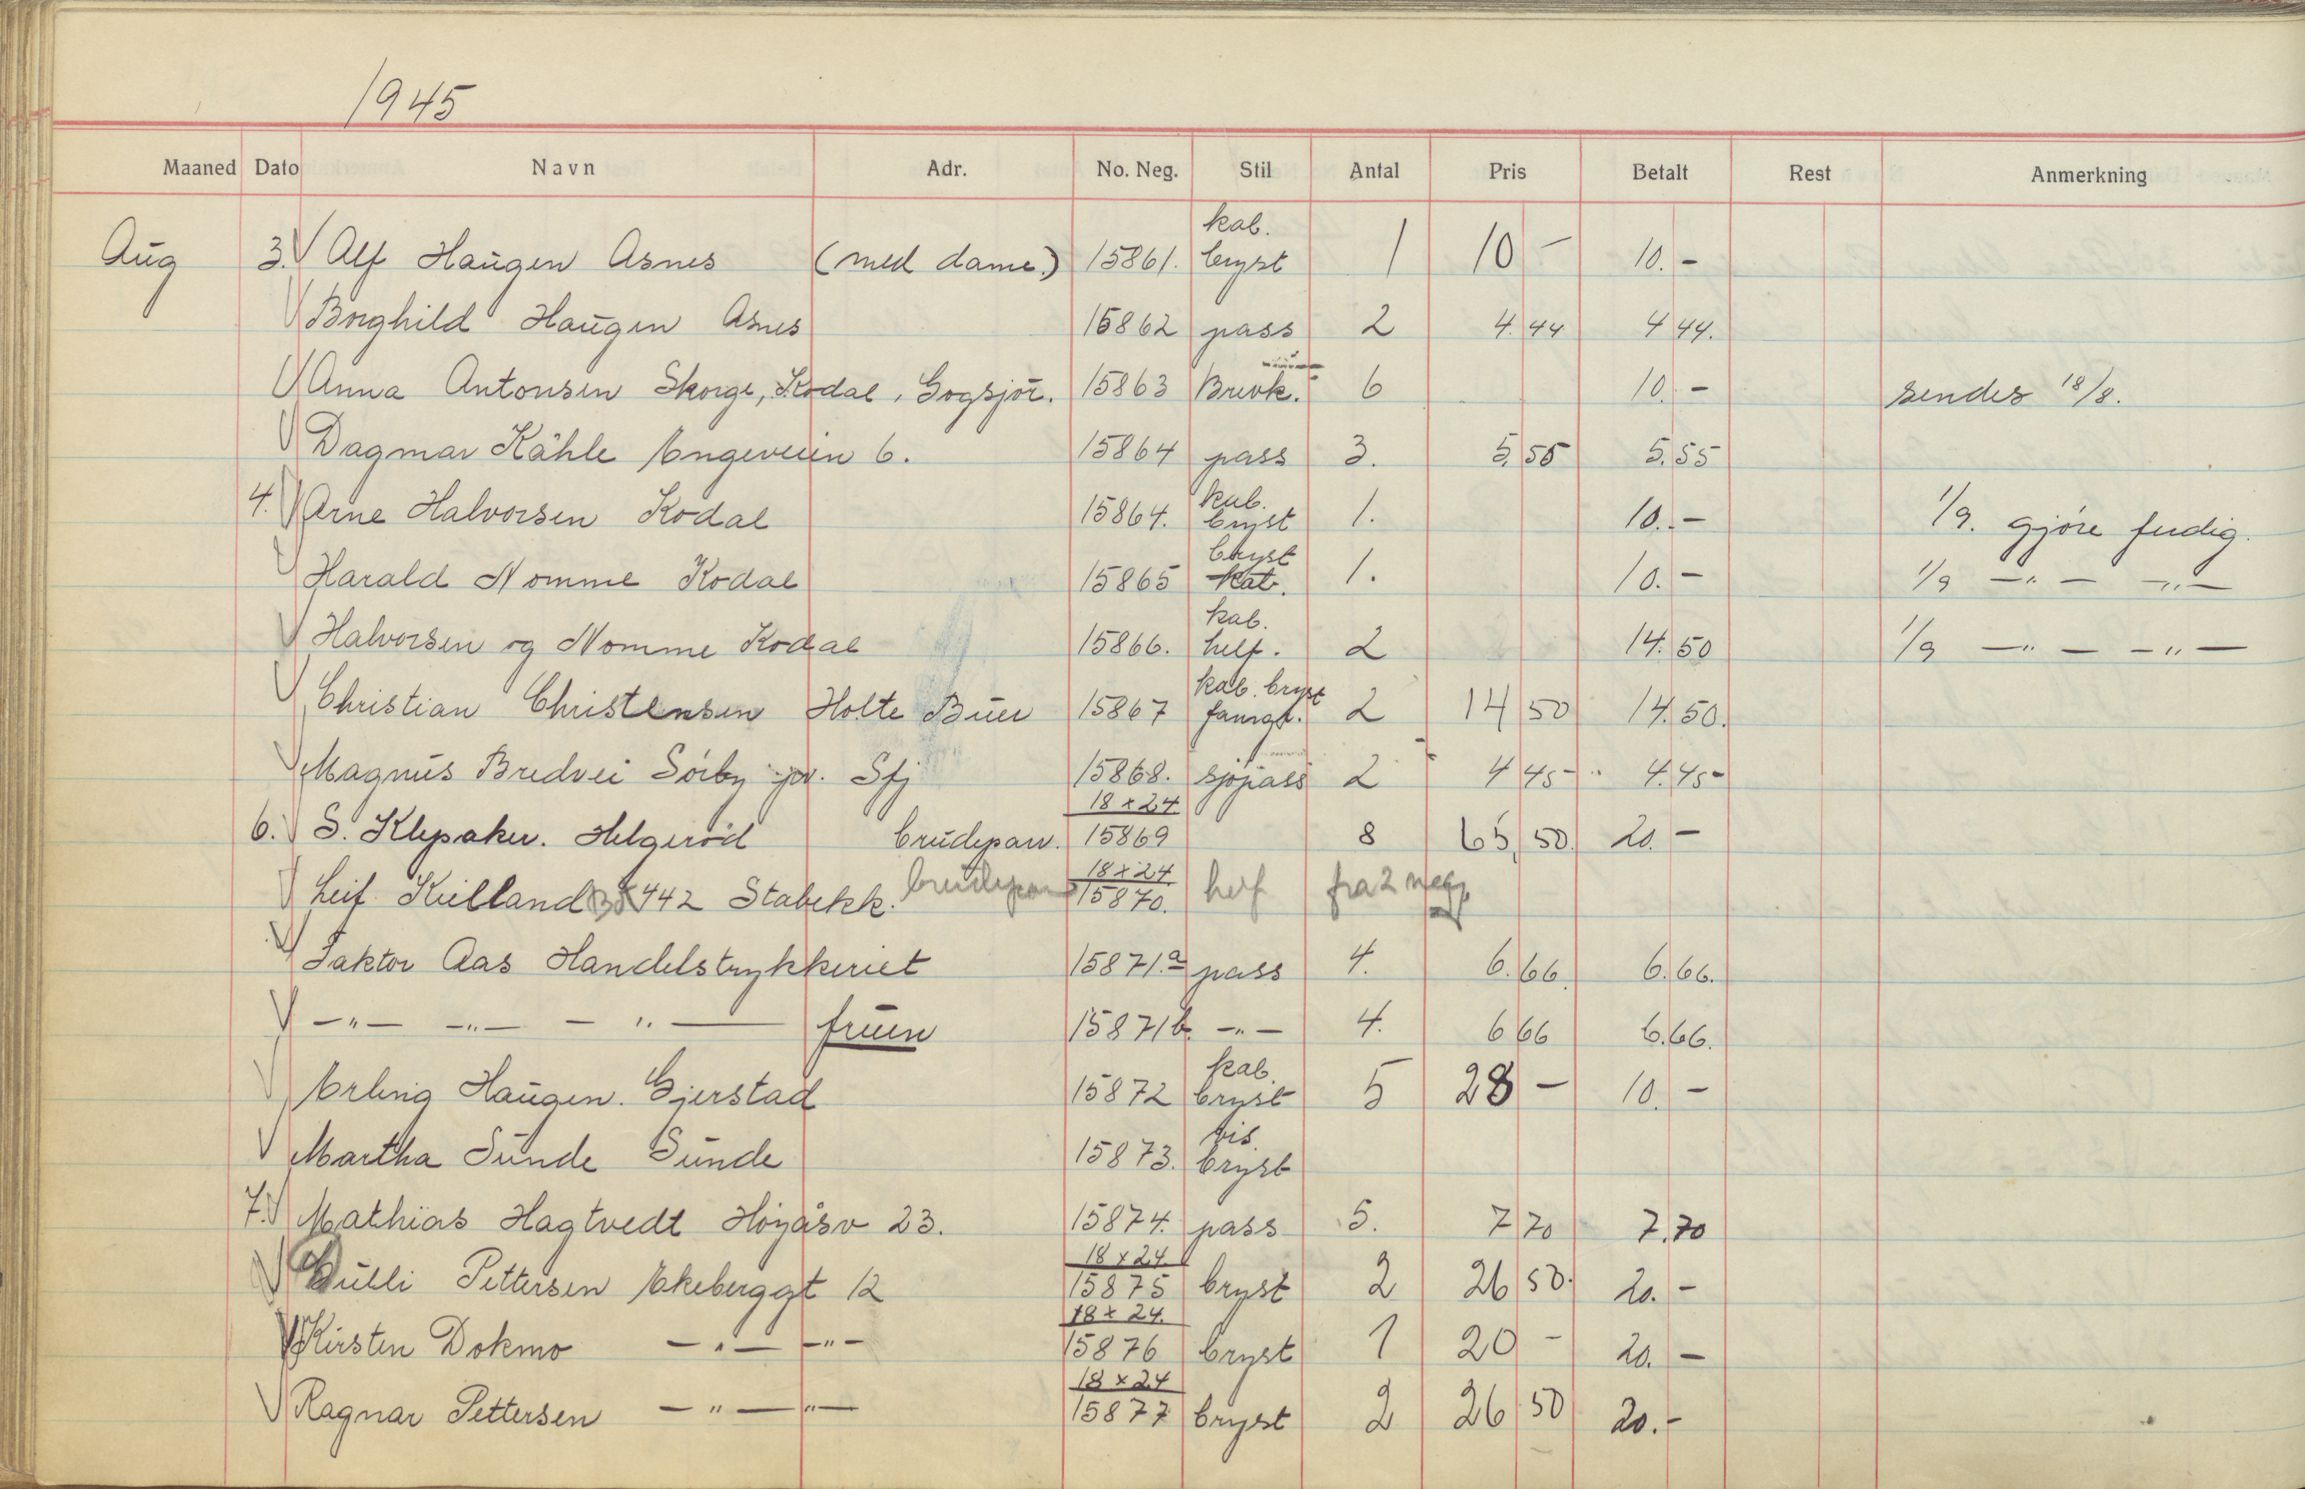 1945
Maaned Dato Navn Adr. No. Neg. Stil Antal Pris Betalt Rest Anmerkning
kab.
Aug 3. Alf Haugen Asnes (med dame.) 15861. bryst 1 10 – 10. –
Borghild Haugen Asnes 15862 pass 2 4.44 4 44.
Anna Antonsen Skorge, Kodal, Gogsjør. 15863 Brevk. 6 10. – sendes 18/8.
Dagmar Kähle Engeveien 6. 15864 pass 3. 5.55 5.55
kab.
4. Arne Halvorsen Kodal 15864. bryst 1. 10. – 1/9. gjøre ferdig.
bryst
Harald Nomme Kodal 15865 kab. 1. 10. – 1/9 –"– –"–
kab.
Halvorsen og Nomme Kodal 15866. helf. 2 14.50 1/9 –"– – –"–
kab. bryst
Christian Christensen Holte Buer 15867 2 14 50 14.50.
Magnus Bredvei Sörby pr. Sfj 15868. sjøpass 2 4 45 – 4.45 –
18 x 24
6. S. Klepaker. Helgeröd brudepar. 15869 8 65,50. 20. –
18 x 24
Leif Kielland 442 Stabekk. brudepar 15870. helf fra 2 neg.
Faktor Aas Handelstrykkeriet 15871.a pass 4. 6.66. 6.66.
–"– –"– – " — fruen 15871b. –"– 4. 6 66 6.66.
kab.
Erling Haugen. Gjerstad 15872 bryst 5 28 – 10. –
vis.
Martha Sunde Sunde 15873. bryst
7. Mathias Hagtvedt Høyåsv 23. 15874. pass 5. 7 70 7.70
18 x 24
Gulli Pettersen Ekeberggt 12 15875 bryst 2 26 50. 20. –
18 x 24.
Kirsten Dokmo –"– –"– 15876 bryst 1 20 – 20. –
18 x 24
Ragnar Pettersen –"– –"– 15877 bryst 2 26 50 20. –